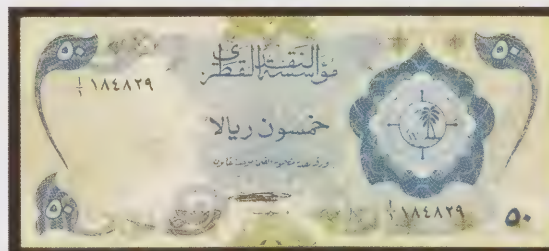 ٥٠ ٥٠
مؤسسة النقد القطري
١/١ ١٨٤٨٢٩
خمسون ريالا
١/١ ١٨٤٨٢٩
٥٠ ٥٠